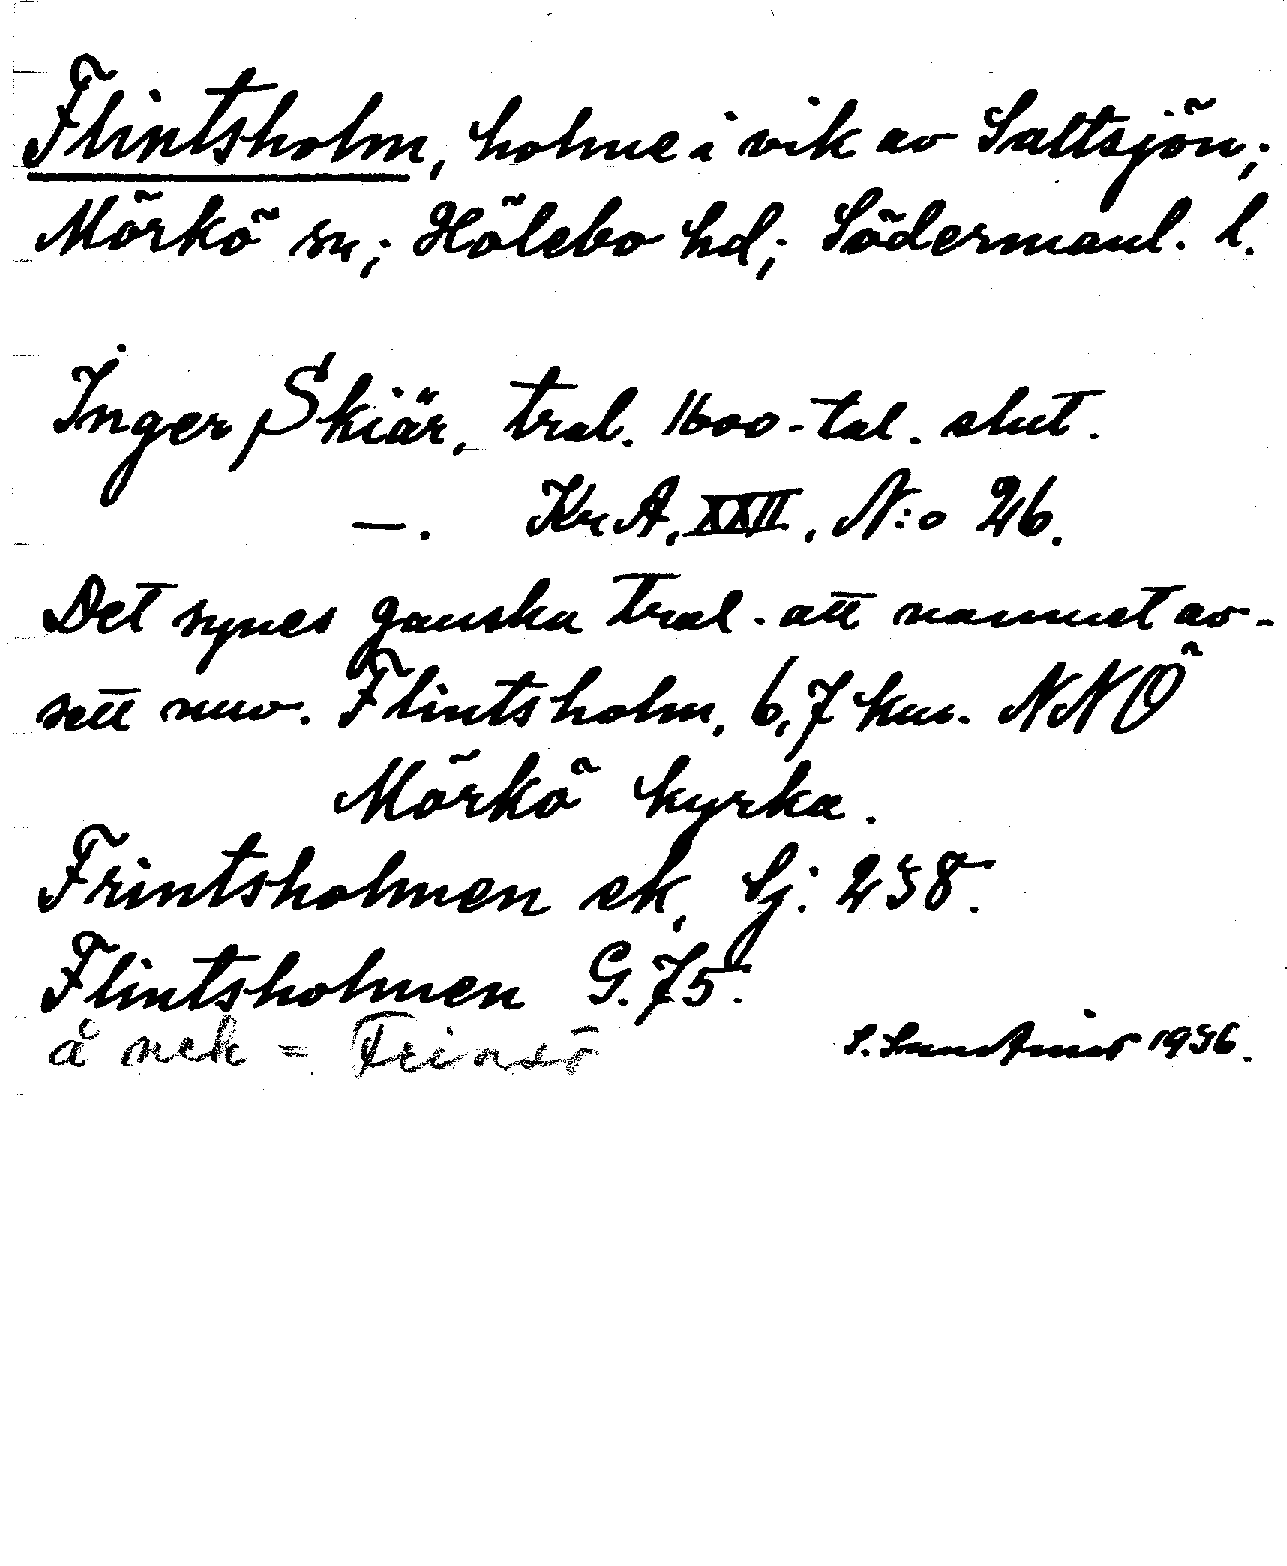 Flintsholm, holme i vik av Saltsjön;
Mörkö sn; Hölebo hd; Södermanl. l.
Inger Skiär, trol. 1600-tal. slut.
—. Kr A. XXII, N:o 26.
Det synes ganska trol. att namnet av-
sett nuv. Flintsholm, 6,7 km. NNÖ
Mörkö kyrka.
Frintsholmen ek, Sj: 238.
Flintsholmen G. 75.
å nek = Frinsö
1936.